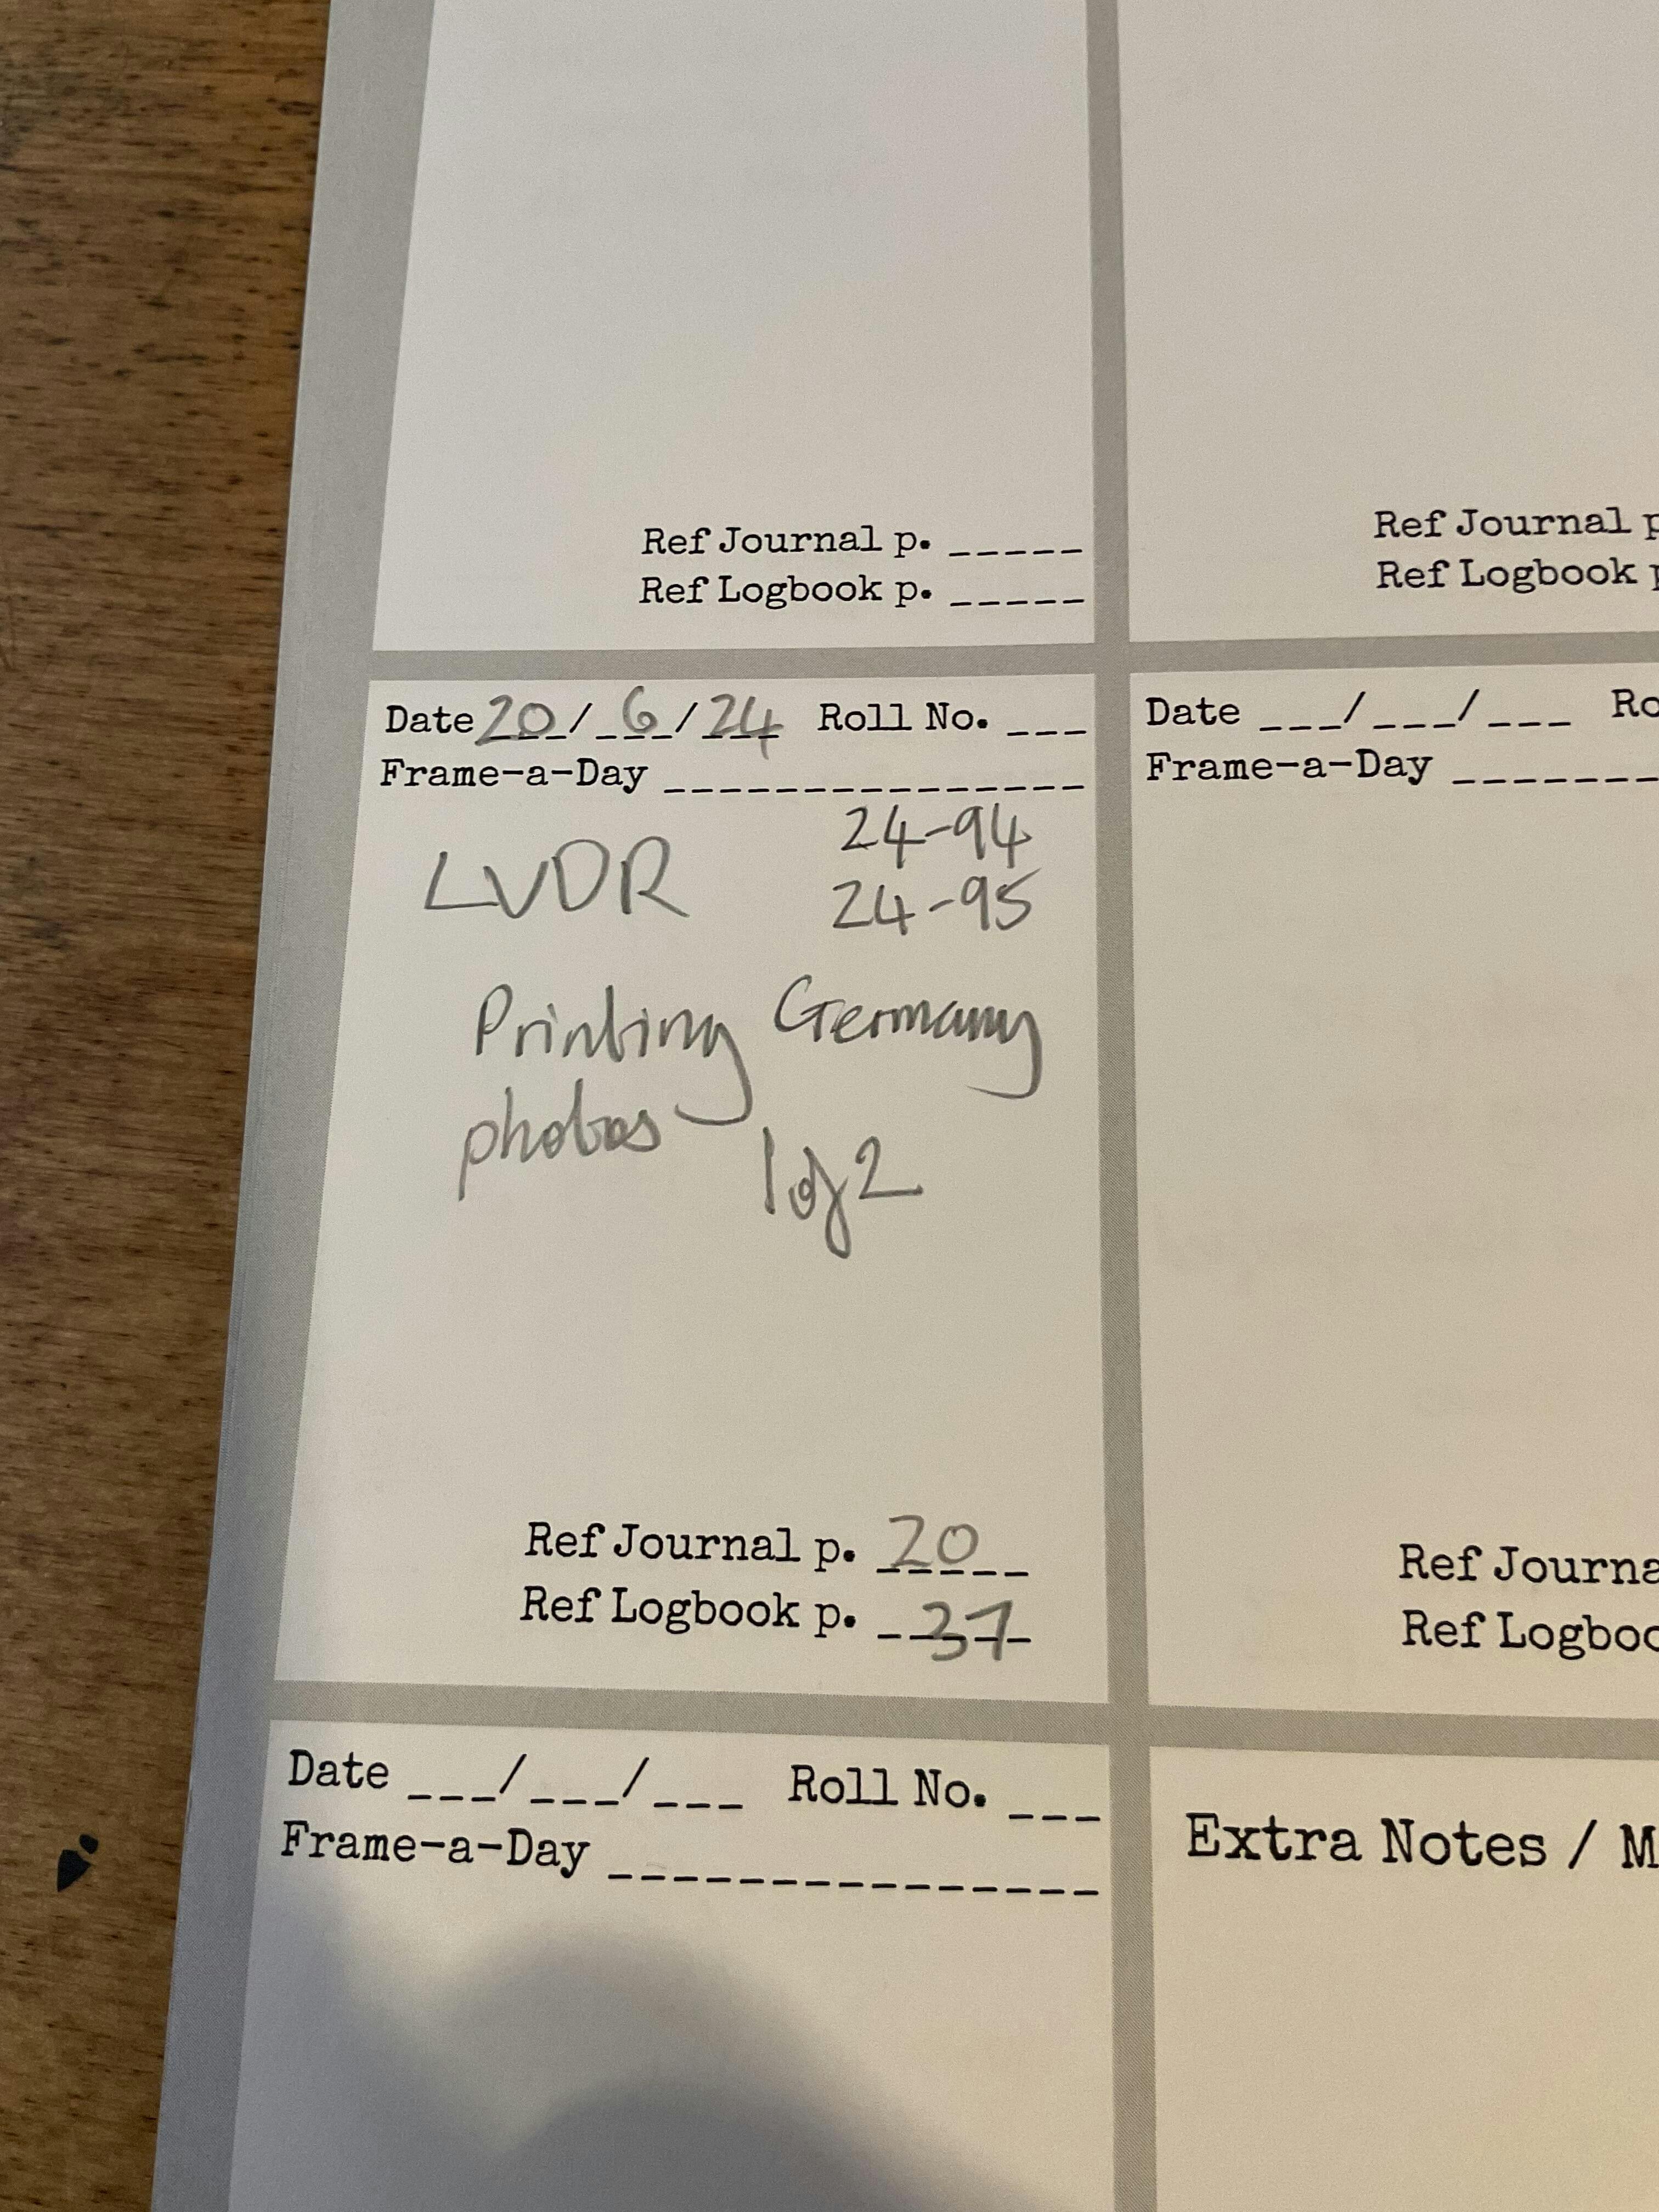 Ref Journal p. _____
Ref Logbook p. _____
Ref Journal p
Ref Logbook p
Date 20/ 6/24 Roll No. ___
Frame-a-Day _______________
LVDR 24-94
24-95
Printing Germany
photos
1 of 2
Ref Journal p. 20
Ref Logbook p. 37
Date ___/___/___ Ro
Frame-a-Day _______
Ref Journa
Ref Logboo
Date ___/___/___ Roll No. ___
Frame-a-Day _______________
Extra Notes / M